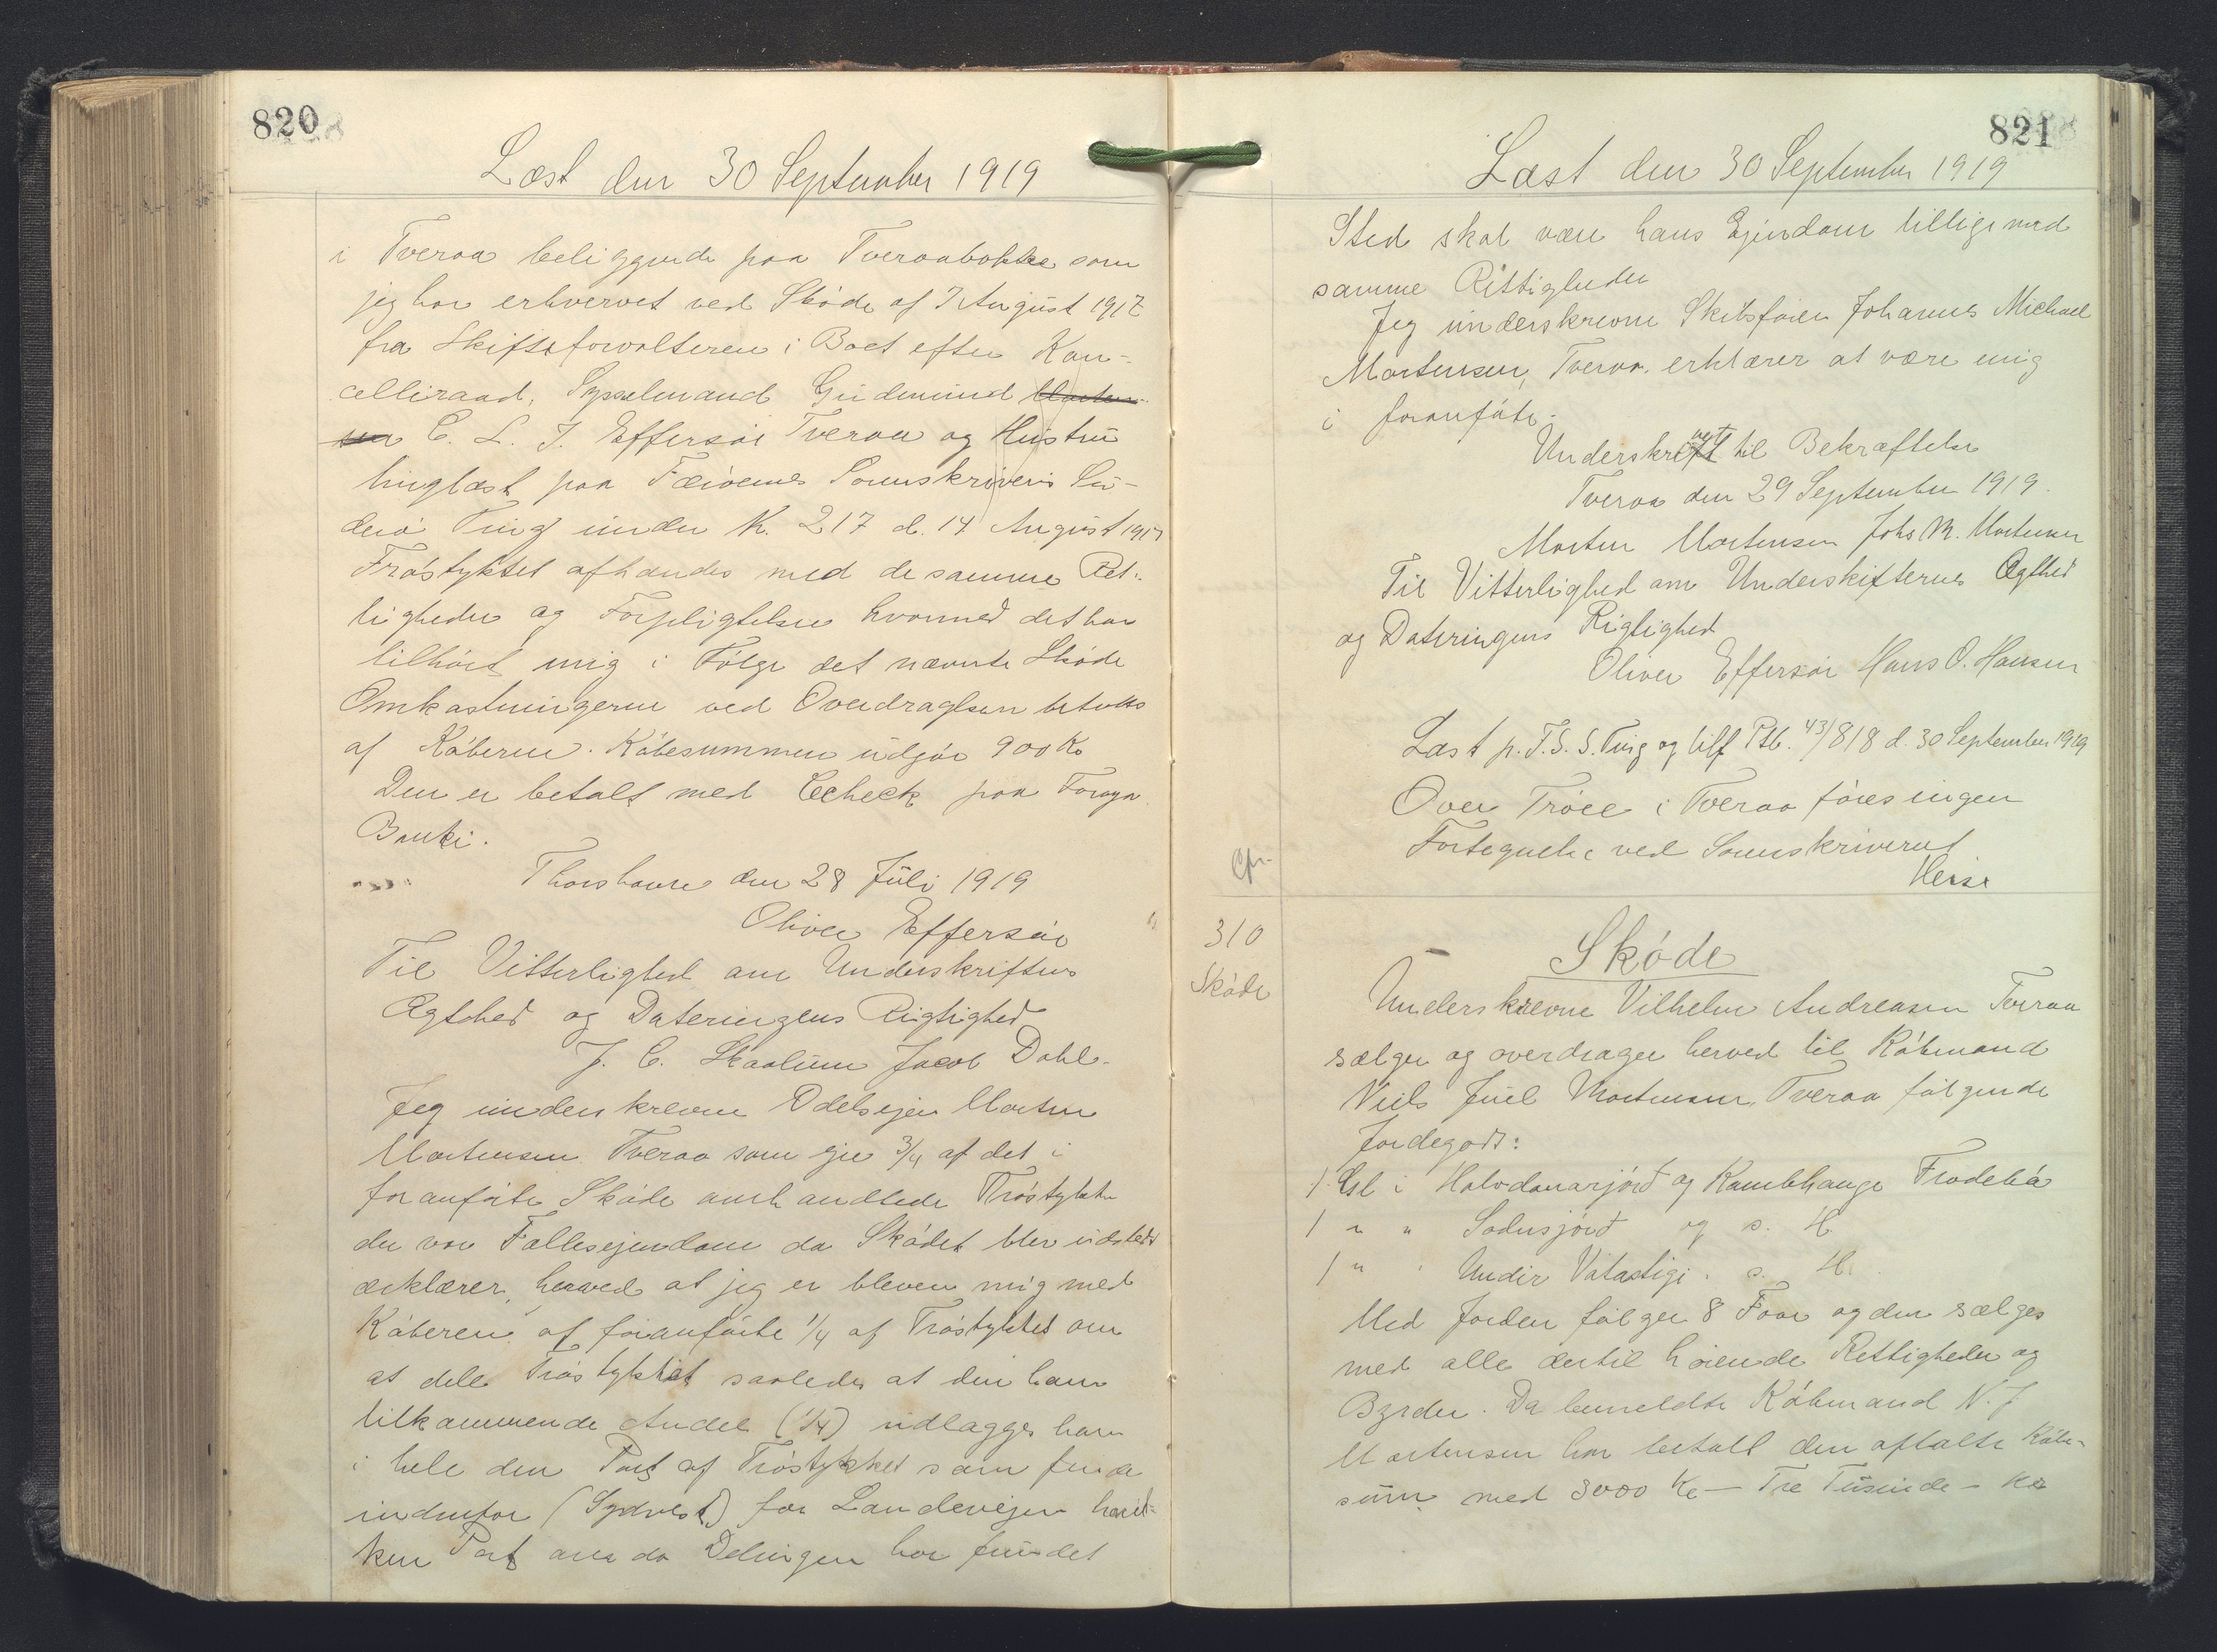 820
Læst den 30 September 1919
i Tveraa beliggende paa Tveraabakke som
jeg har erhvervet ved Skøde af 7 August 1917
fra Skifteforvalteren i Boet efter Kan-
celliraad, Sysselmand Gudmund Morten-
sen C. L. J. Effersøe Tveraa og Hustru
tinglæst paa Færøernes Sorenskriveri Su-
derø Ting under N. 217 d. 14 August 1917
Trøstykket afhændes med de samme Ret-
tigheder og Forpligtelser hvormed det har
tilhørt mig i Følge det nævnte Skøde
Omkostningerne ved Overdragelsen betales
af Køberen. Købesummen udgør 900 Kr
Den er betalt med Ccheck paa Føroya
Banki.
Thorshavn den 28 Juli 1919
Oliver Effersøe
Til Vitterlighed om Underskriftens
Ægtehed og Dateringens Rigtighed
J. C. Skaalum Jacob Dahl.
Jeg underskrevne Odelsejer Morten
Mortensen Tveraa som ejer 3/4 af det i
foranførte Skøde omhandlede Trøstykke
der var Fællesejendom da Skødet blev udstedt
erklærer herved at jeg er bleven enig med
Køberen af foranførte 1/4 af Trøstykket om
at dele Trøstykket saaledes at den ham
tilkommende Andel (1/4) udlægges ham
i hele den Part af Trøstykket som finde
indenfor (Sydvest) for Landevejen hvil-
ken Part naar da Delingen har fundet
821
Læst den 30 September 1919
Sted skal være hans Ejendom tillige med
samme Rettigheder
Jeg underskrevne Skibsfører Johannes Michael
Mortensen, Tveraa. erklærer at være enig
i foranførte.
Underskrevet til Bekræftelse
Tveraa den 29 September 1919.
Morten Mortensen Johs M. Mortensen
Til Vitterlighed om Underskifternes Ægthed
og Dateringens Rigtighed
Oliver Effersøe Hans O. Hansen
Læst p. F. S. S. Ting og tilf Ptb. 43/818 d. 30 September 1919
Over Trøer i Tveraa føres ingen
Fortegnelse ved Sorenskriveriet
Heise
310
Skøde
Skøde
Underskrevne Vilhelm Andreasen Tveraa
sælger og overdrager herved til Købmand
Niels Juel Mortensen, Tveraa følgende
Jordegods:
1 Gl i Halvdanarjørð og Kambhauge Frodebø
1 " " Sodnsjørð og s. H
1 " " Undir Vátastigi . s. H.
Med Jorden følger 8 Faar og den sælges
med alle dertil hørende Rettigheder og
Byrder. Da bemeldte Købmand N. J
Mortensen har betalt den aftalte Købe-
sum med 3000 Kr – Tre Tusinde – Kr